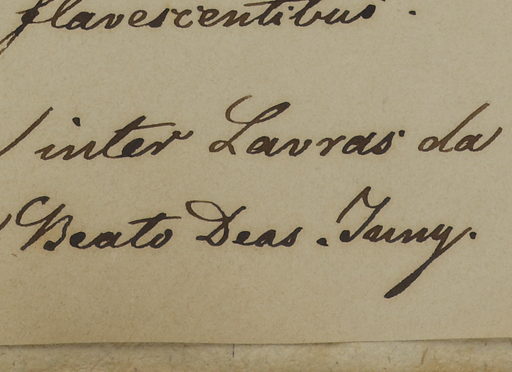 flavescentibus.
inter Lavras da
Beato Deas. Juny.